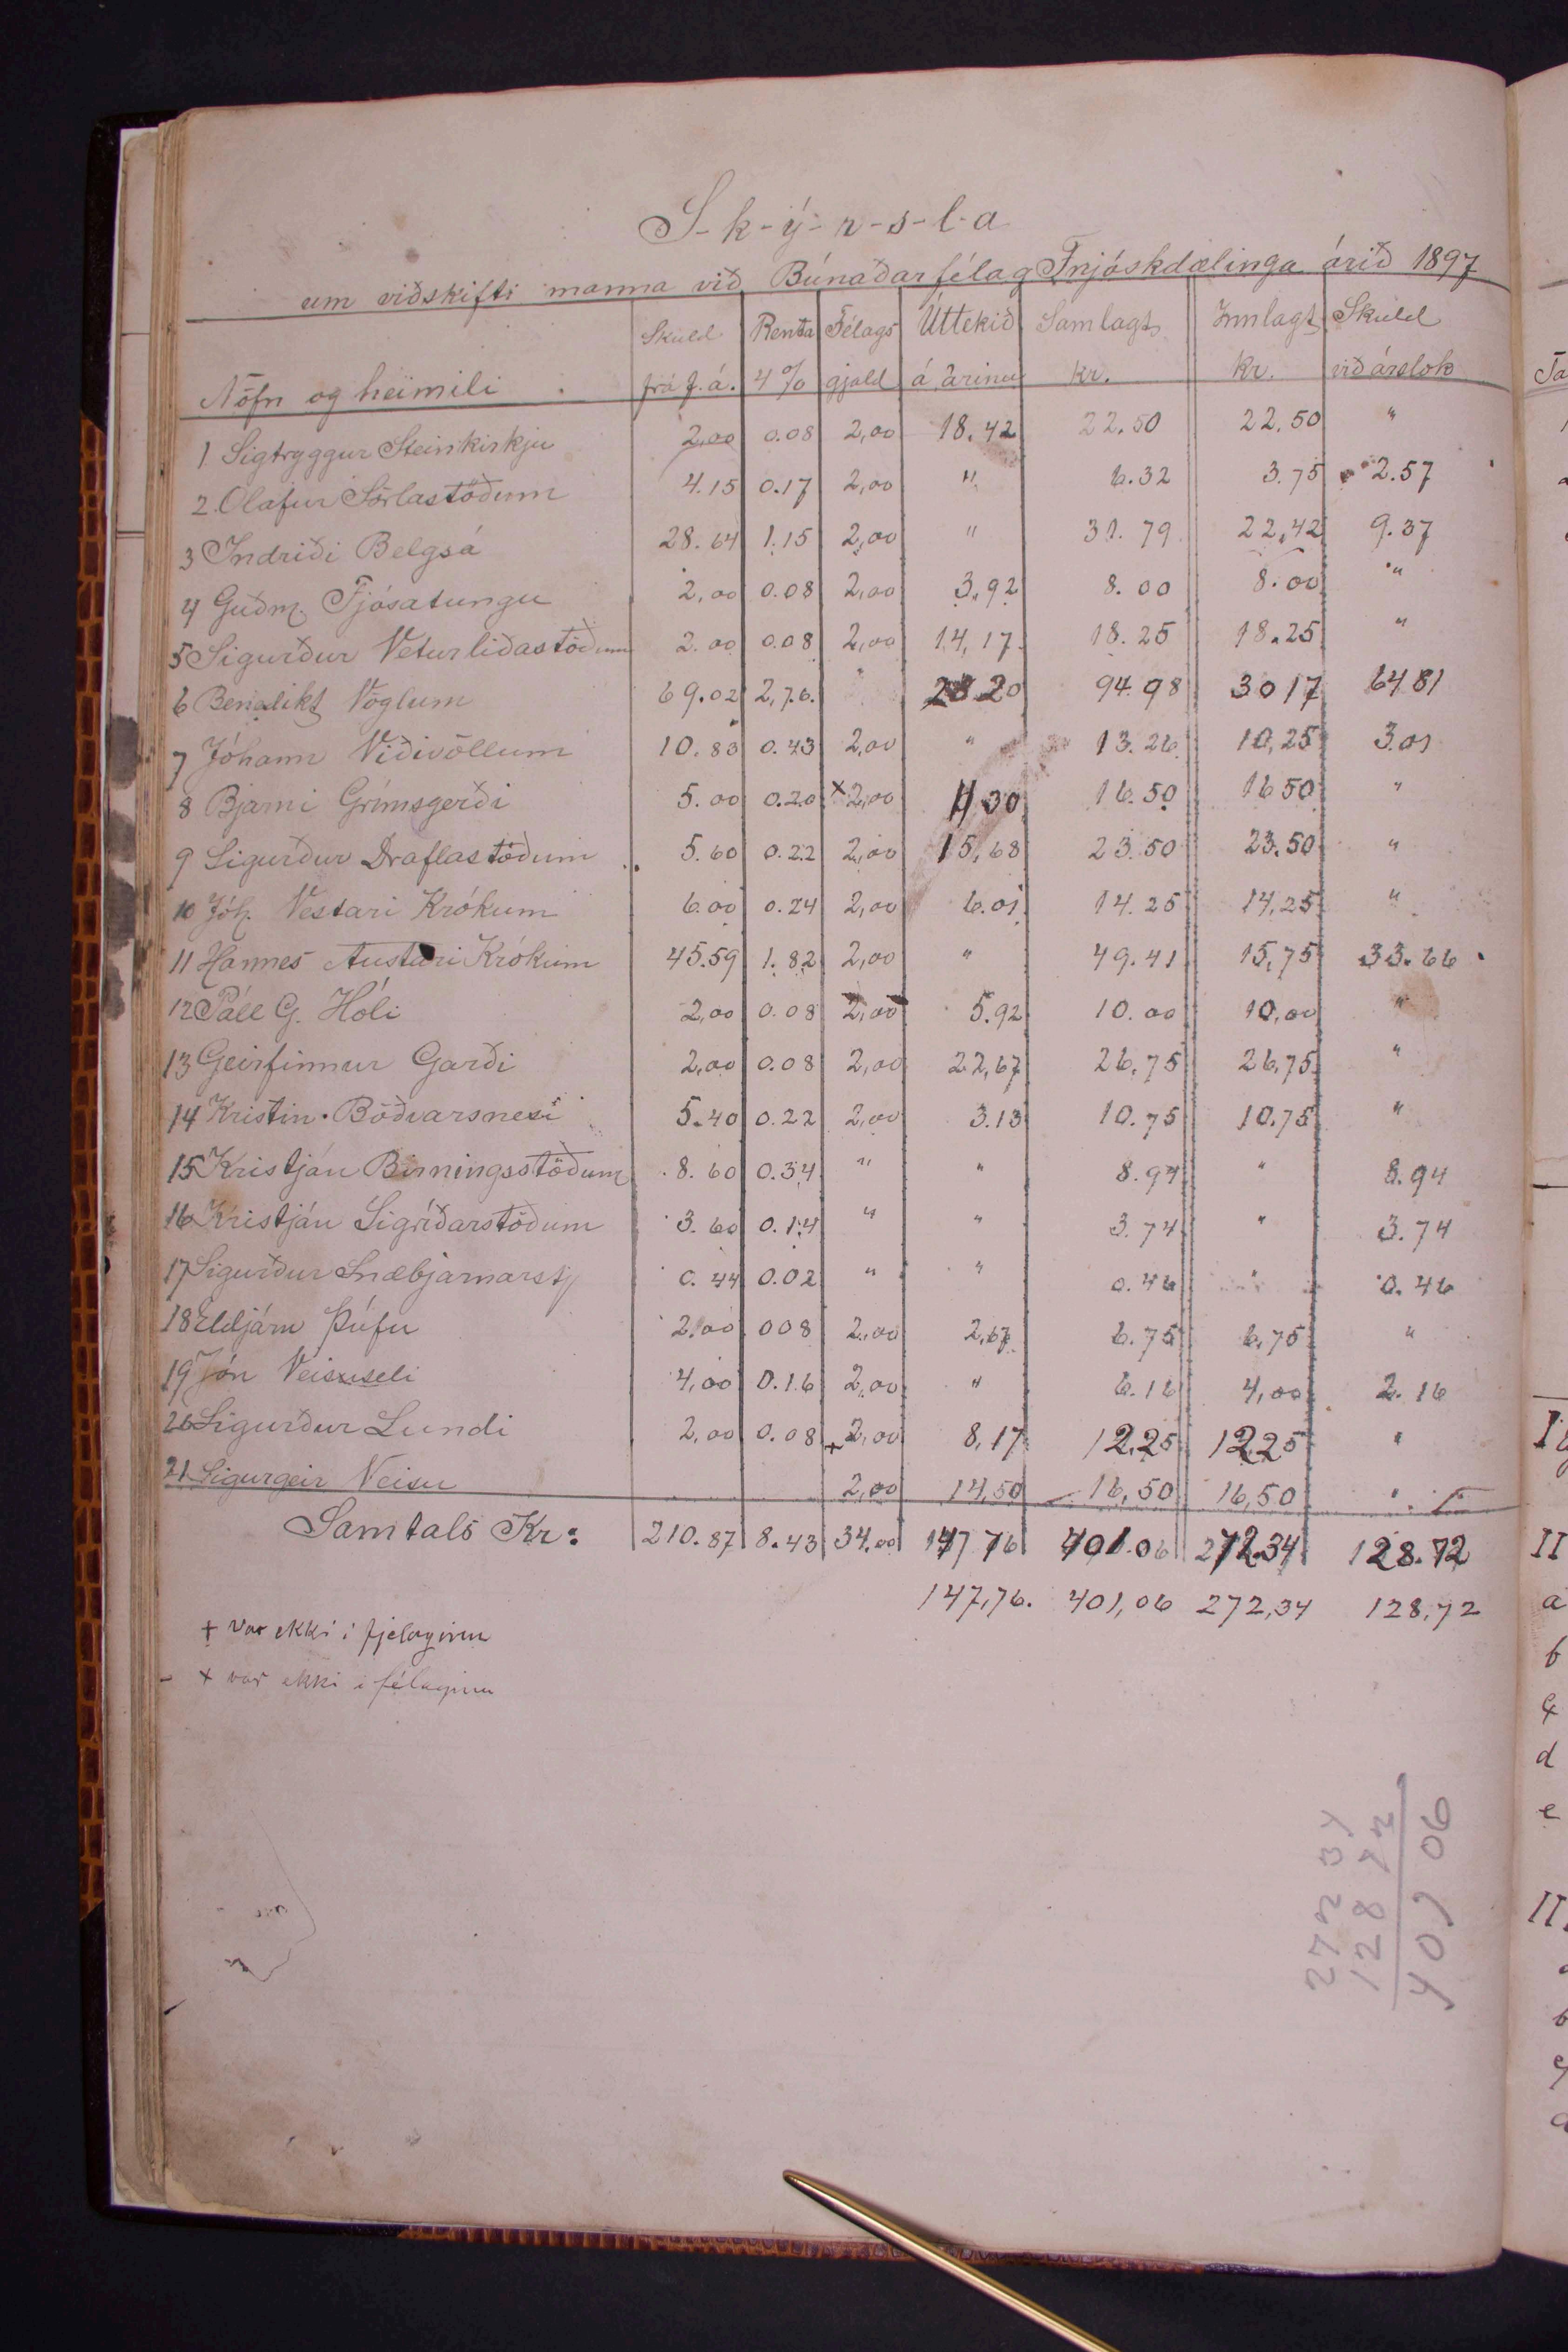 S-k-ý-r-s-l-a
um viðskifti manna við Búnaðarfélag Fnjóskdælinga árið 1897
Nöfn og heimili Skuld frá f.á. Renta 4% Félags gjald Úttekið á árinu Samlagt kr. Innlagt Kr. Skuld við árslok
1 Sigtryggur Steinkirkju 2,00 0.08 2,00 18.42 22.50 22.50 "
2. Olafur Sörlastöðum 4.15 0.17 2,00 " 6.32 3.75 2.57
3 Indriði Belgsá 28.64 1.15 2,00 " 31.79 22,42 9.37
4 Guðm. Fjósatungu 2,00 0.08 2,00 3,92 8.00 8.00 "
5 Sigurður Veturliðastöðum 2.00 0.08 2,00 14,17. 18.25 18.25 "
6 Benidikt Vöglum 69.02 2,76. 23 20 94.98 30 17 64 81
7 Jóhann Viðivöllum 10.83 0.43 2,00 " 13.26 10,25 3.01
8 Bjarni Grímsgerði 5.00 0.20 × 2,00 9 30 16.50 16 50 "
9 Sigurður Draflastöðum 5.60 0.22 2,00 15,68 23.50 23.50 "
10 Jóh. Vestari Krókum 6.00 0.24 2,00 6.01 14.25 14,25 "
11 Hannes Austari Krókum 45.59 1.82 2,00 " 49.41 15,75 33.66
12 Páll G. Hóli 2,00 0.08 2,00 5.92 10.00 10,00 "
13 Geirfinnur Garði 2,00 0.08 2,00 22,67 26,75 26,75 "
14 Kristin Böðvarsnesi 5.40 0.22 2,00 3.13 10.75 10.75 "
15 Kristján Birningsstöðum 8.60 0.34 " " 8.94 " 8.94
16 Kristján Sigríðarstöðum 3.60 0.14 " " 3.74 " 3.74
17 Sigurður Snæbjarnarst. 0.44 0.02 " " 0.46 " 0.46
18 Eldjárn Þúfu 2,00 008 2,00 2,67 6.75 6,75 "
19 Jón Veisuseli 4,00 0.16 2,00 " 6.16 4,00 2.16
20 Sigurður Lundi 2,00 0.08 + 2,00 8,17 12,25 12,25 "
21 Sigurgeir Veisu 2,00 14,50 16,50 16,50 "
Samtals Kr: 210.87 8.43 34.00 147 76 401.06 272.34 128.72
147,76. 401,06 272,34 128,72
+ var ekki i fjelaginu
× var ekki i félaginu
272 34
128 72
401 06